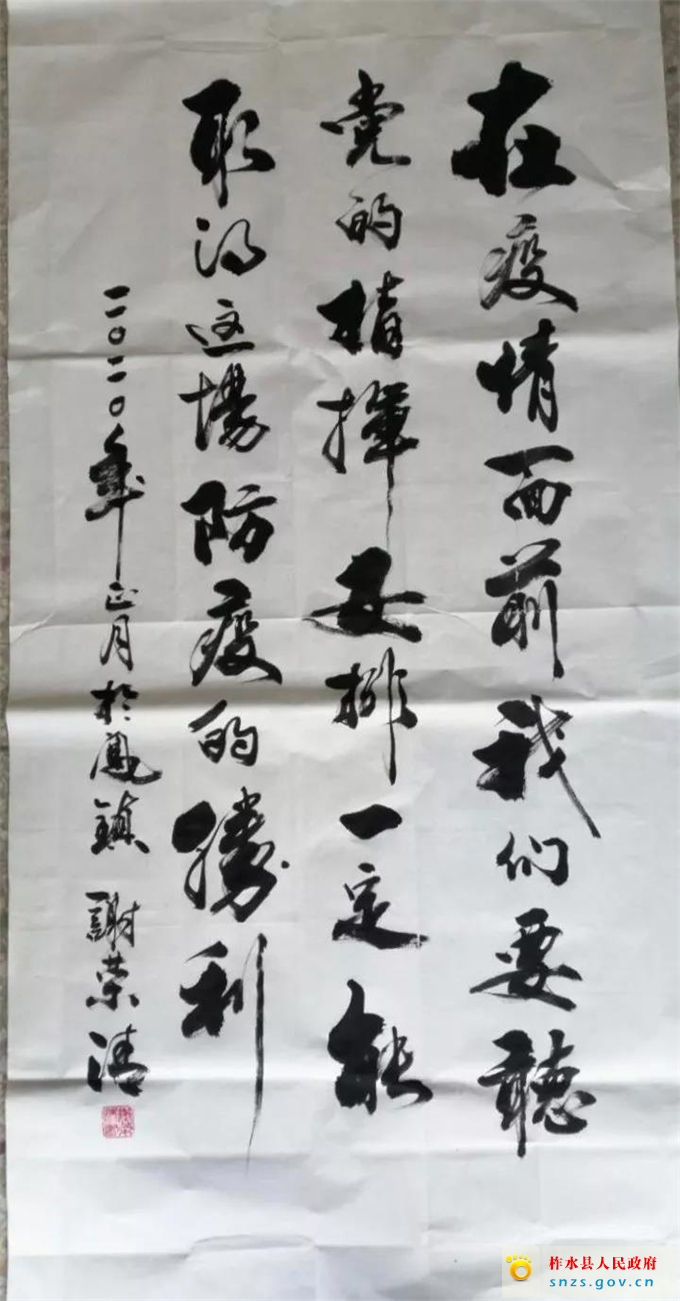 在疫情面前我们要聽
党的指揮安排一定能
取得这場防疫的勝利
二〇二〇年正月於鳳鎮 謝荣清
柞水县人民政府
snzs.gov.cn